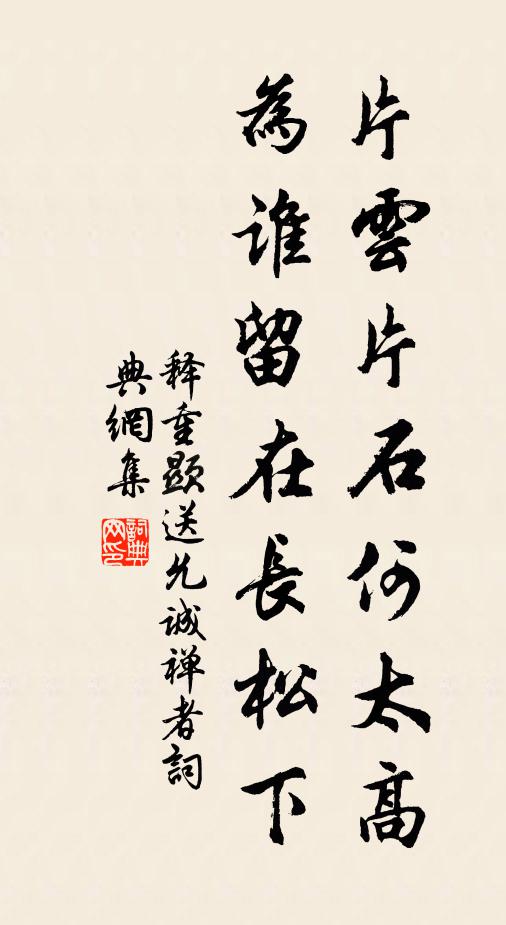 片雲片石何太高
為誰留在長松下
释重顯送允诚禅者詞
典網集
詞典網印